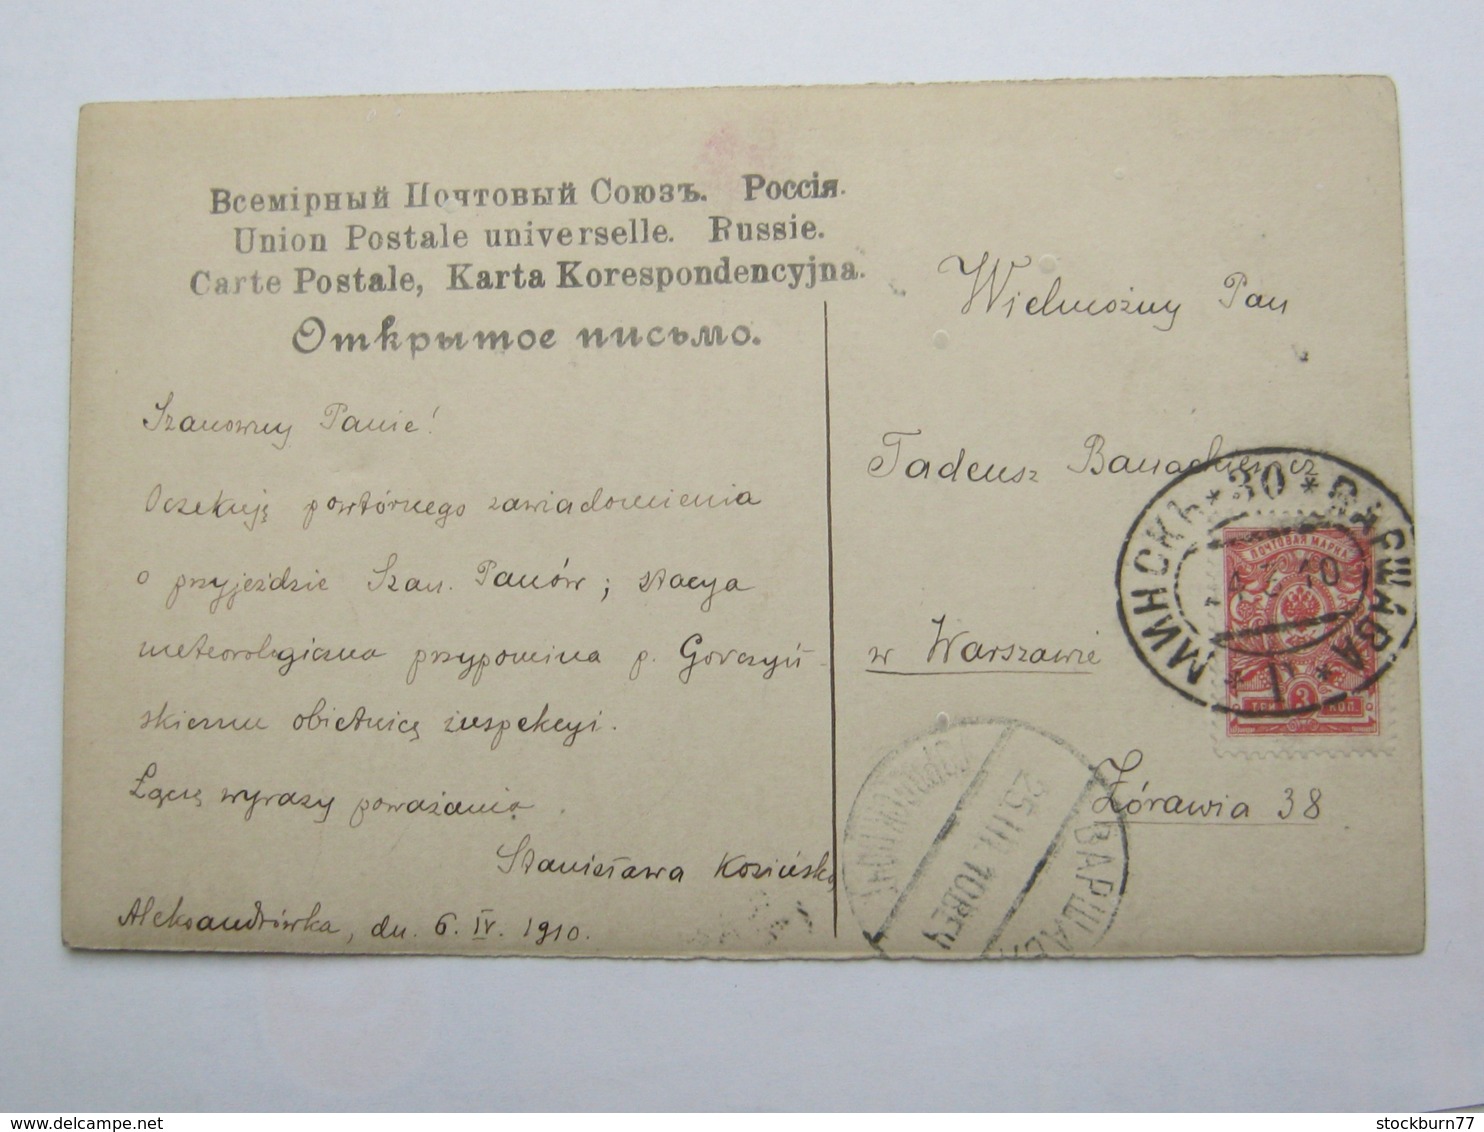 Всемірный Почтовый Союзъ. Россія.
Union Postale universelle. Russie.
Carte Postale, Karta Korespondencyjna.
Открытое письмо.
Szanowny Panie!
Oczekuję powtórnego zawiadomienia
o przyjeździe Szan. Panów; stacya
meteorologiczna przypomina p. Gorczyń-
skiemu obietnicę inspekcyi.
Łączę wyrazy poważania.
Stanisława Kosińska
Aleksandrówka, dn. 6. IV. 1910.
Wielmożny Pan
Tadeusz Banachiewicz
w Warszawie
Żórawia 38
МИНСКЪ * 30 * ВАРШАВА * П *
ПОЧТОВАЯ МАРКА
ТРИ 3 КОП.
ВАРШАВА
25.III.10 ВЕЧ
stockburn77